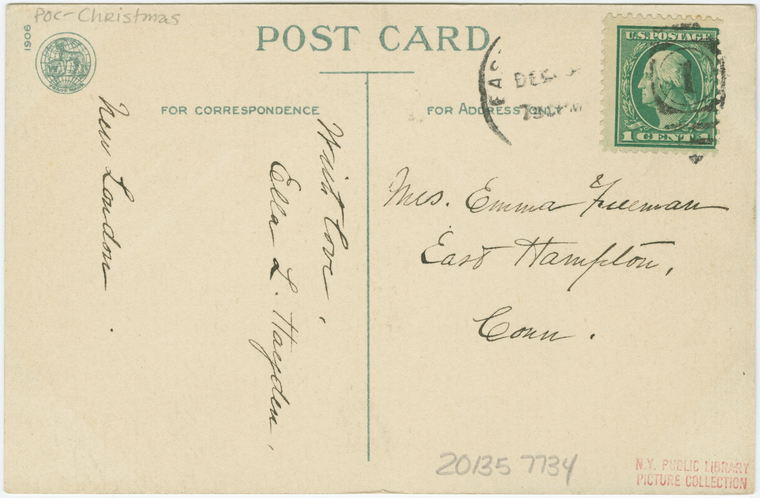 PoC-Christmas
1906
POST CARD
FOR CORRESPONDENCE
FOR ADDRESS ONLY
DEC
U.S. POSTAGE
1 CENT
1
With love,
Ella L. Hayden,
New London.
Mrs. Emma Freeman
East Hampton,
Conn.
20135 7734
N.Y. PUBLIC LIBRARY
PICTURE COLLECTION